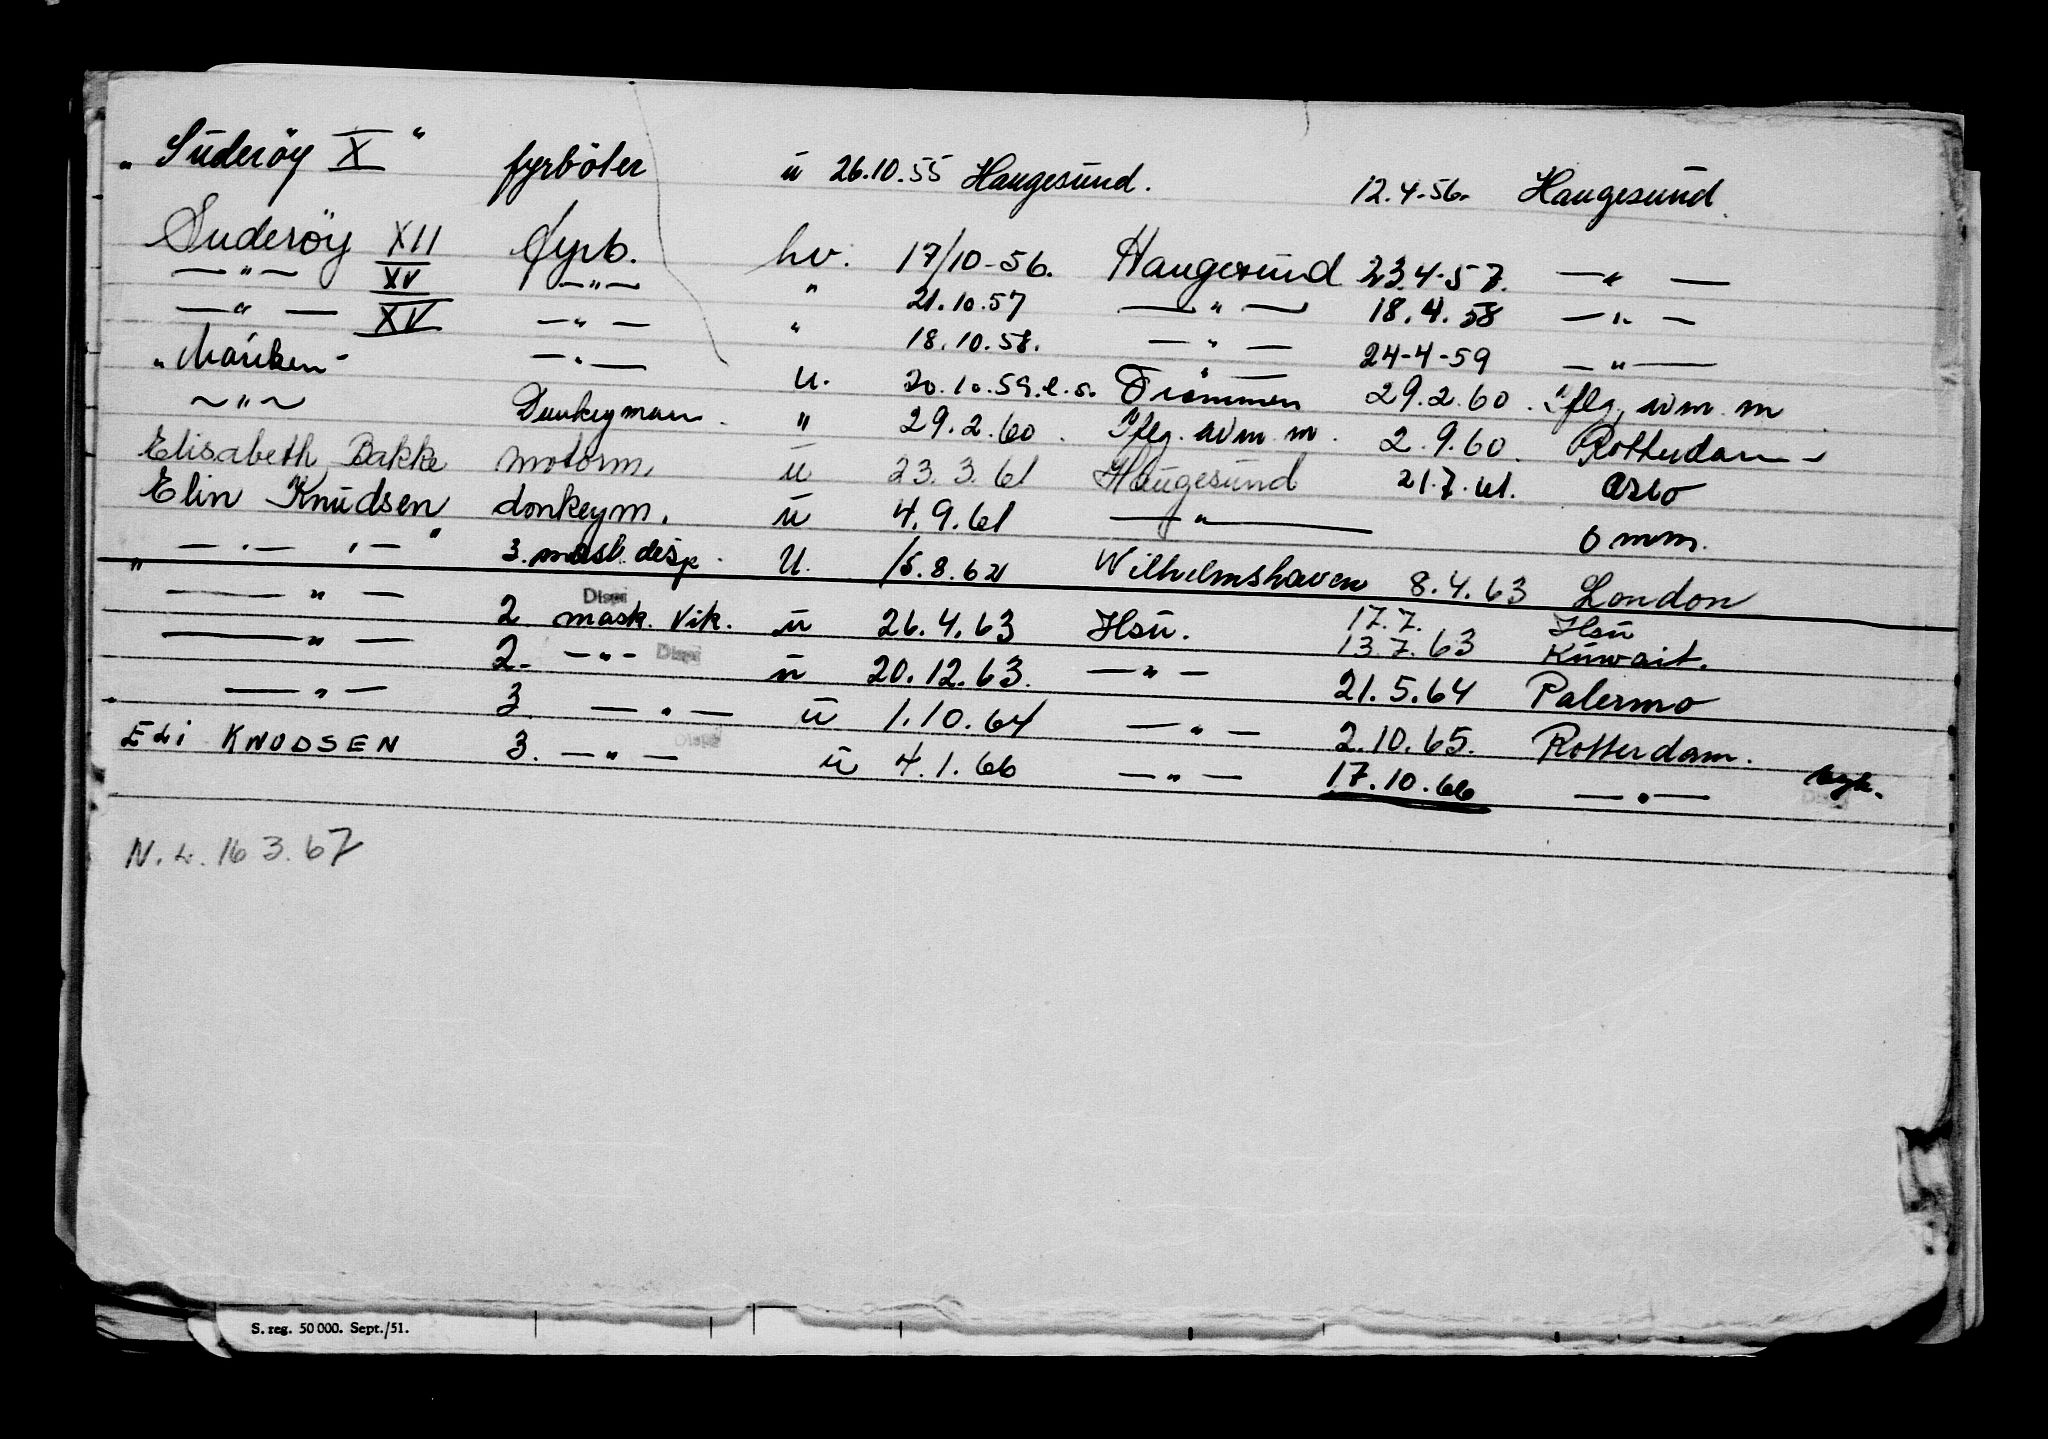 „Suderöy X“ fyrböter u 26.10.55 Haugesund. 12.4.56. Haugesund.
Suderöy XII fyrb. hv. 17/10-56. Haugesund 23.4-57. —"—
—"— XV —"— " 21.10.57 —"— 18.4.58 —"—
—"— XV —"— " 18.10.58. —"— 24-4-59 —"—
"Máuken" —"— u. 20.10.59 Drammen 29.2.60. Pflg. m
—"— Dunkeyman. " 29.2.60. Pflg. m. 2.9.60. Rotterdam
Elisabeth Bakke motorm. u 23.3.61 Haugesund 21.7.61. Oslo
Elin Knudsen donkeym. u 4.9.61 —"— o mm.
" —"— —" 3. mask disp. U. 15.8.62 Wilhelmshaven 8.4.63 London
—"— 2 Disp mask. vik. u 26.4.63 Hsu. 17.7. Hsu
13.7.63 Kuwait.
—"— 2. —"— Disp u 20.12.63. —"— 21.5.64 Palermo
—"— 3. —"— u 1.10.64 —"— 2.10.65. Rotterdam.
ELI KNUDSEN 3. —"— Disp u 4.1.66 —"— 17.10.66 —"— syk.
N.L. 16 3.67
S. reg. 50 000. Sept./51.